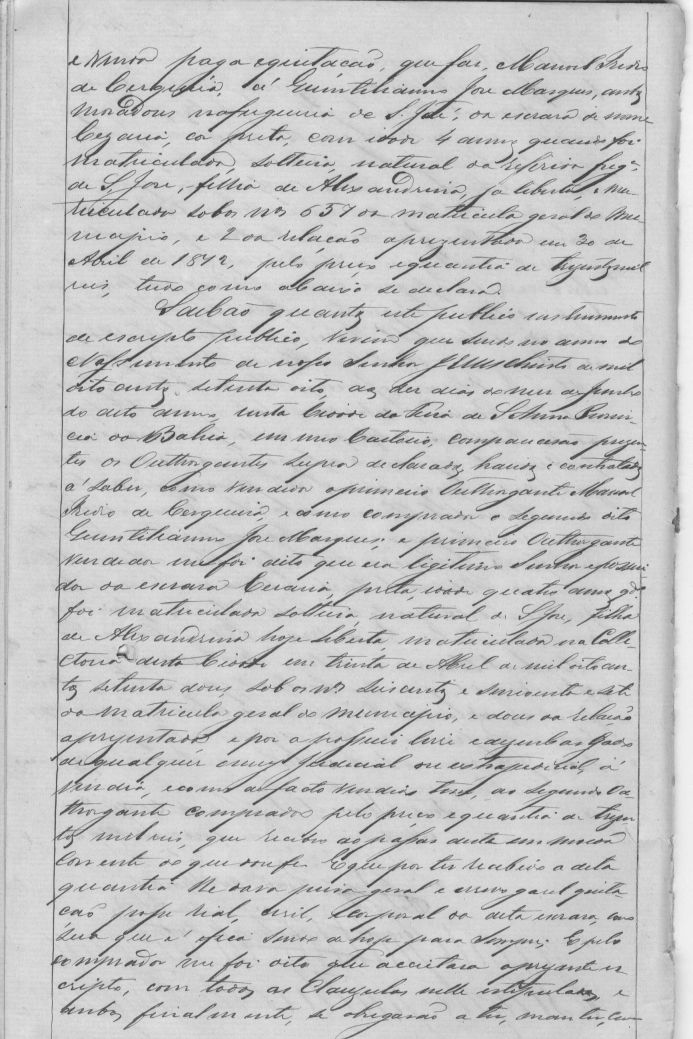 e venda paga e quitação, que faz, Manoel Pedro
de Cerqueira, á Guintilianno Jose Marques, ambos
moradores na freguesia de S. José, da escrava de nome
Cezaria, cor preta, com idade 4 annos quando foi
matriculada, solteira, natural da referida freg.ª
de S. Jose, filha de Alexandrina, ja liberta, e ma-
triculada sob os nos 657 da matricula geral do Mu-
nicipio, e 2 da relação aprezentada em 30 de
Abril de 1872, pelo preço e quantia de trezentos mil
reis, tudo como abaixo se declara.
Saibão quantos este publico instrumento
de escripto publico, virem que sendo no anno do
Nassimento de nosso Senhor JESUS Christo de mil
oito centos setenta oito, aos dez dias do mez de Junho
do dito anno, nesta Cidade da Feira de S. Anna Provin-
cia da Bahia, em meo Cartorio, comparecerão prezen-
tes os Outhorgantes supra declarados, havidos e contratados
á saber, como vendedor o primeiro Outhorgante Manoel
Pedro de Cerqueira, e como comprador o segundo dito
Guintilianno Jose Marques; e primeiro Outhorgante
vendedor me foi dito que era legitimo Senhor e possui-
dor da escrava Cezaria, preta, idade quatro annos qdo
foi matriculada solteira, natural de S. Jose, filha
de Alexandrina hoje liberta, matriculada na Colle-
ctoria desta Cidade em trinta de Abril de mil oito cen-
tos setenta dous sob os nos seis centos e sincoenta e sete
da matricula geral do municipio, e dous da relação
aprezentada e por a possuir livre e dezembaraçada
de qualquer onus judicial ou extrajudicial, á
vendia, e como de facto vendido tem, ao segundo Ou-
thorgante comprador pelo preço e quantia de trezen-
tos mil reis, que recebeo ao passar desta em moeda
Corrente do que dou fé. E que por ter recebido a dita
quantia lhe dava plena geral e irrevogavel quita-
ção posse Rial, civil, e corporal da dita escrava, cuja
sua que é e fica sendo de hoje para sempre; E pelo
comprador me foi dito que acceitava a prezente es-
cripto, com todas as Clauzulas nelle estipuladas, e
ambos finalmente, se obrigarão a ter, manter, cum-